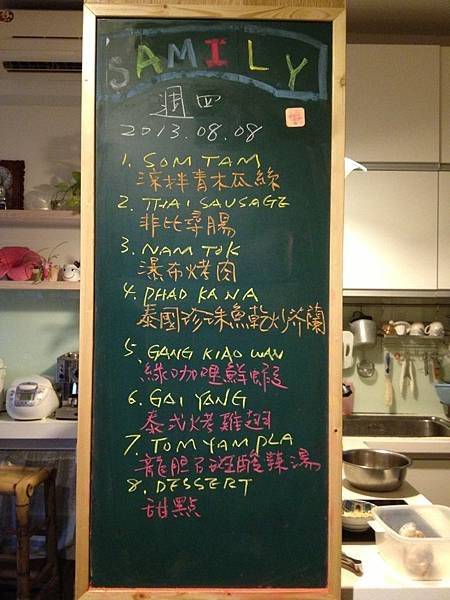 SAMILY
週四
2013.08.08
1. SOM TAM
涼拌青木瓜絲
2. THAI SAUSAGE
非比尋腸
3. NAM TOK
瀑布烤肉
4. PHAD KANA
泰國珍珠魚乾炒芥蘭
5. GANG KIAO WAN
綠咖哩鮮蝦
6. GAI YANG
泰式烤雞翅
7. TOM YAM PLA
龍胆石斑酸辣湯
8. DESSERT
甜點